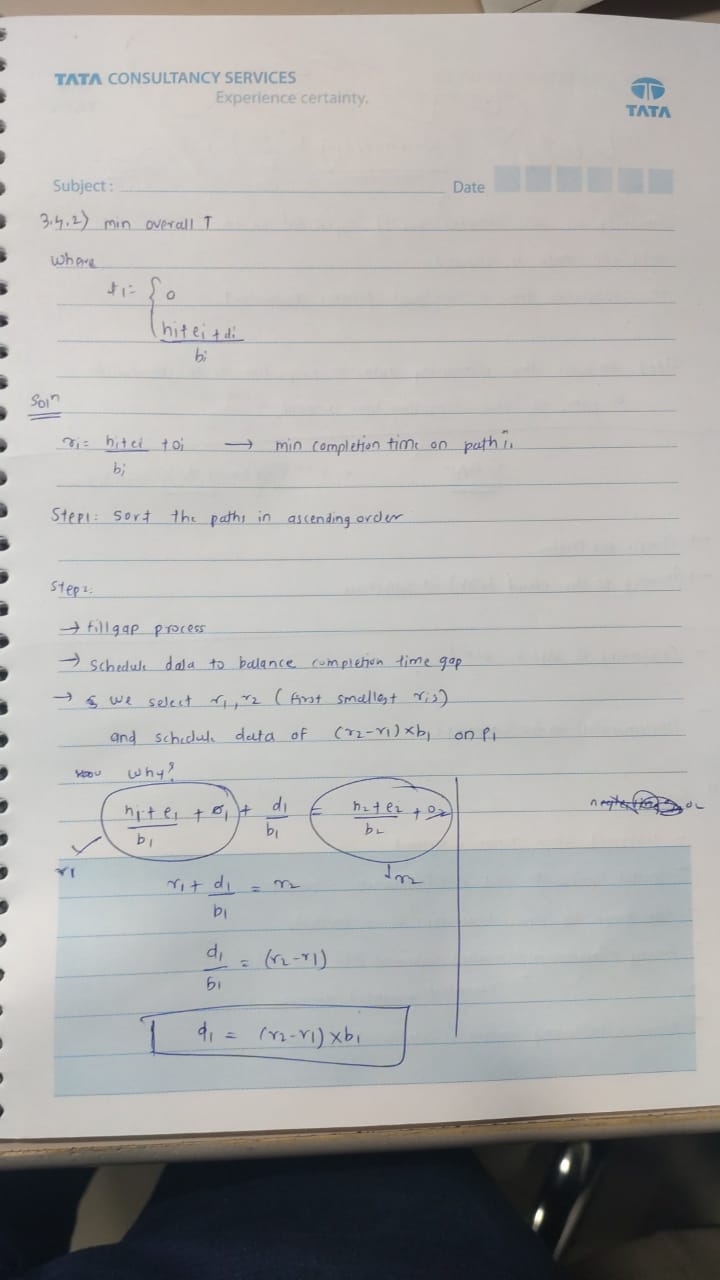 TATA CONSULTANCY SERVICES
Experience certainty.
TATA
Subject :
Date
3.4.2) min overall T
where
t1= { 0
hi+ei+di
bi
Soln
ri= hi+ei +oi → min completion time on path i.
bi
Step1: Sort the paths in ascending order
Step2:
→ fill gap process
→ Schedule data to balance completion time gap
→ we select r1, r2 (first smallest ri's)
and schedule data of (r2-r1)×b1 on P1
Why?
h1+e1 + o1 + d1 = h2+e2 + o2
b1 b1 b2
r1 r2
r1+ d1 = r2
b1
d1 = (r2-r1)
b1
d1 = (r2-r1)×b1